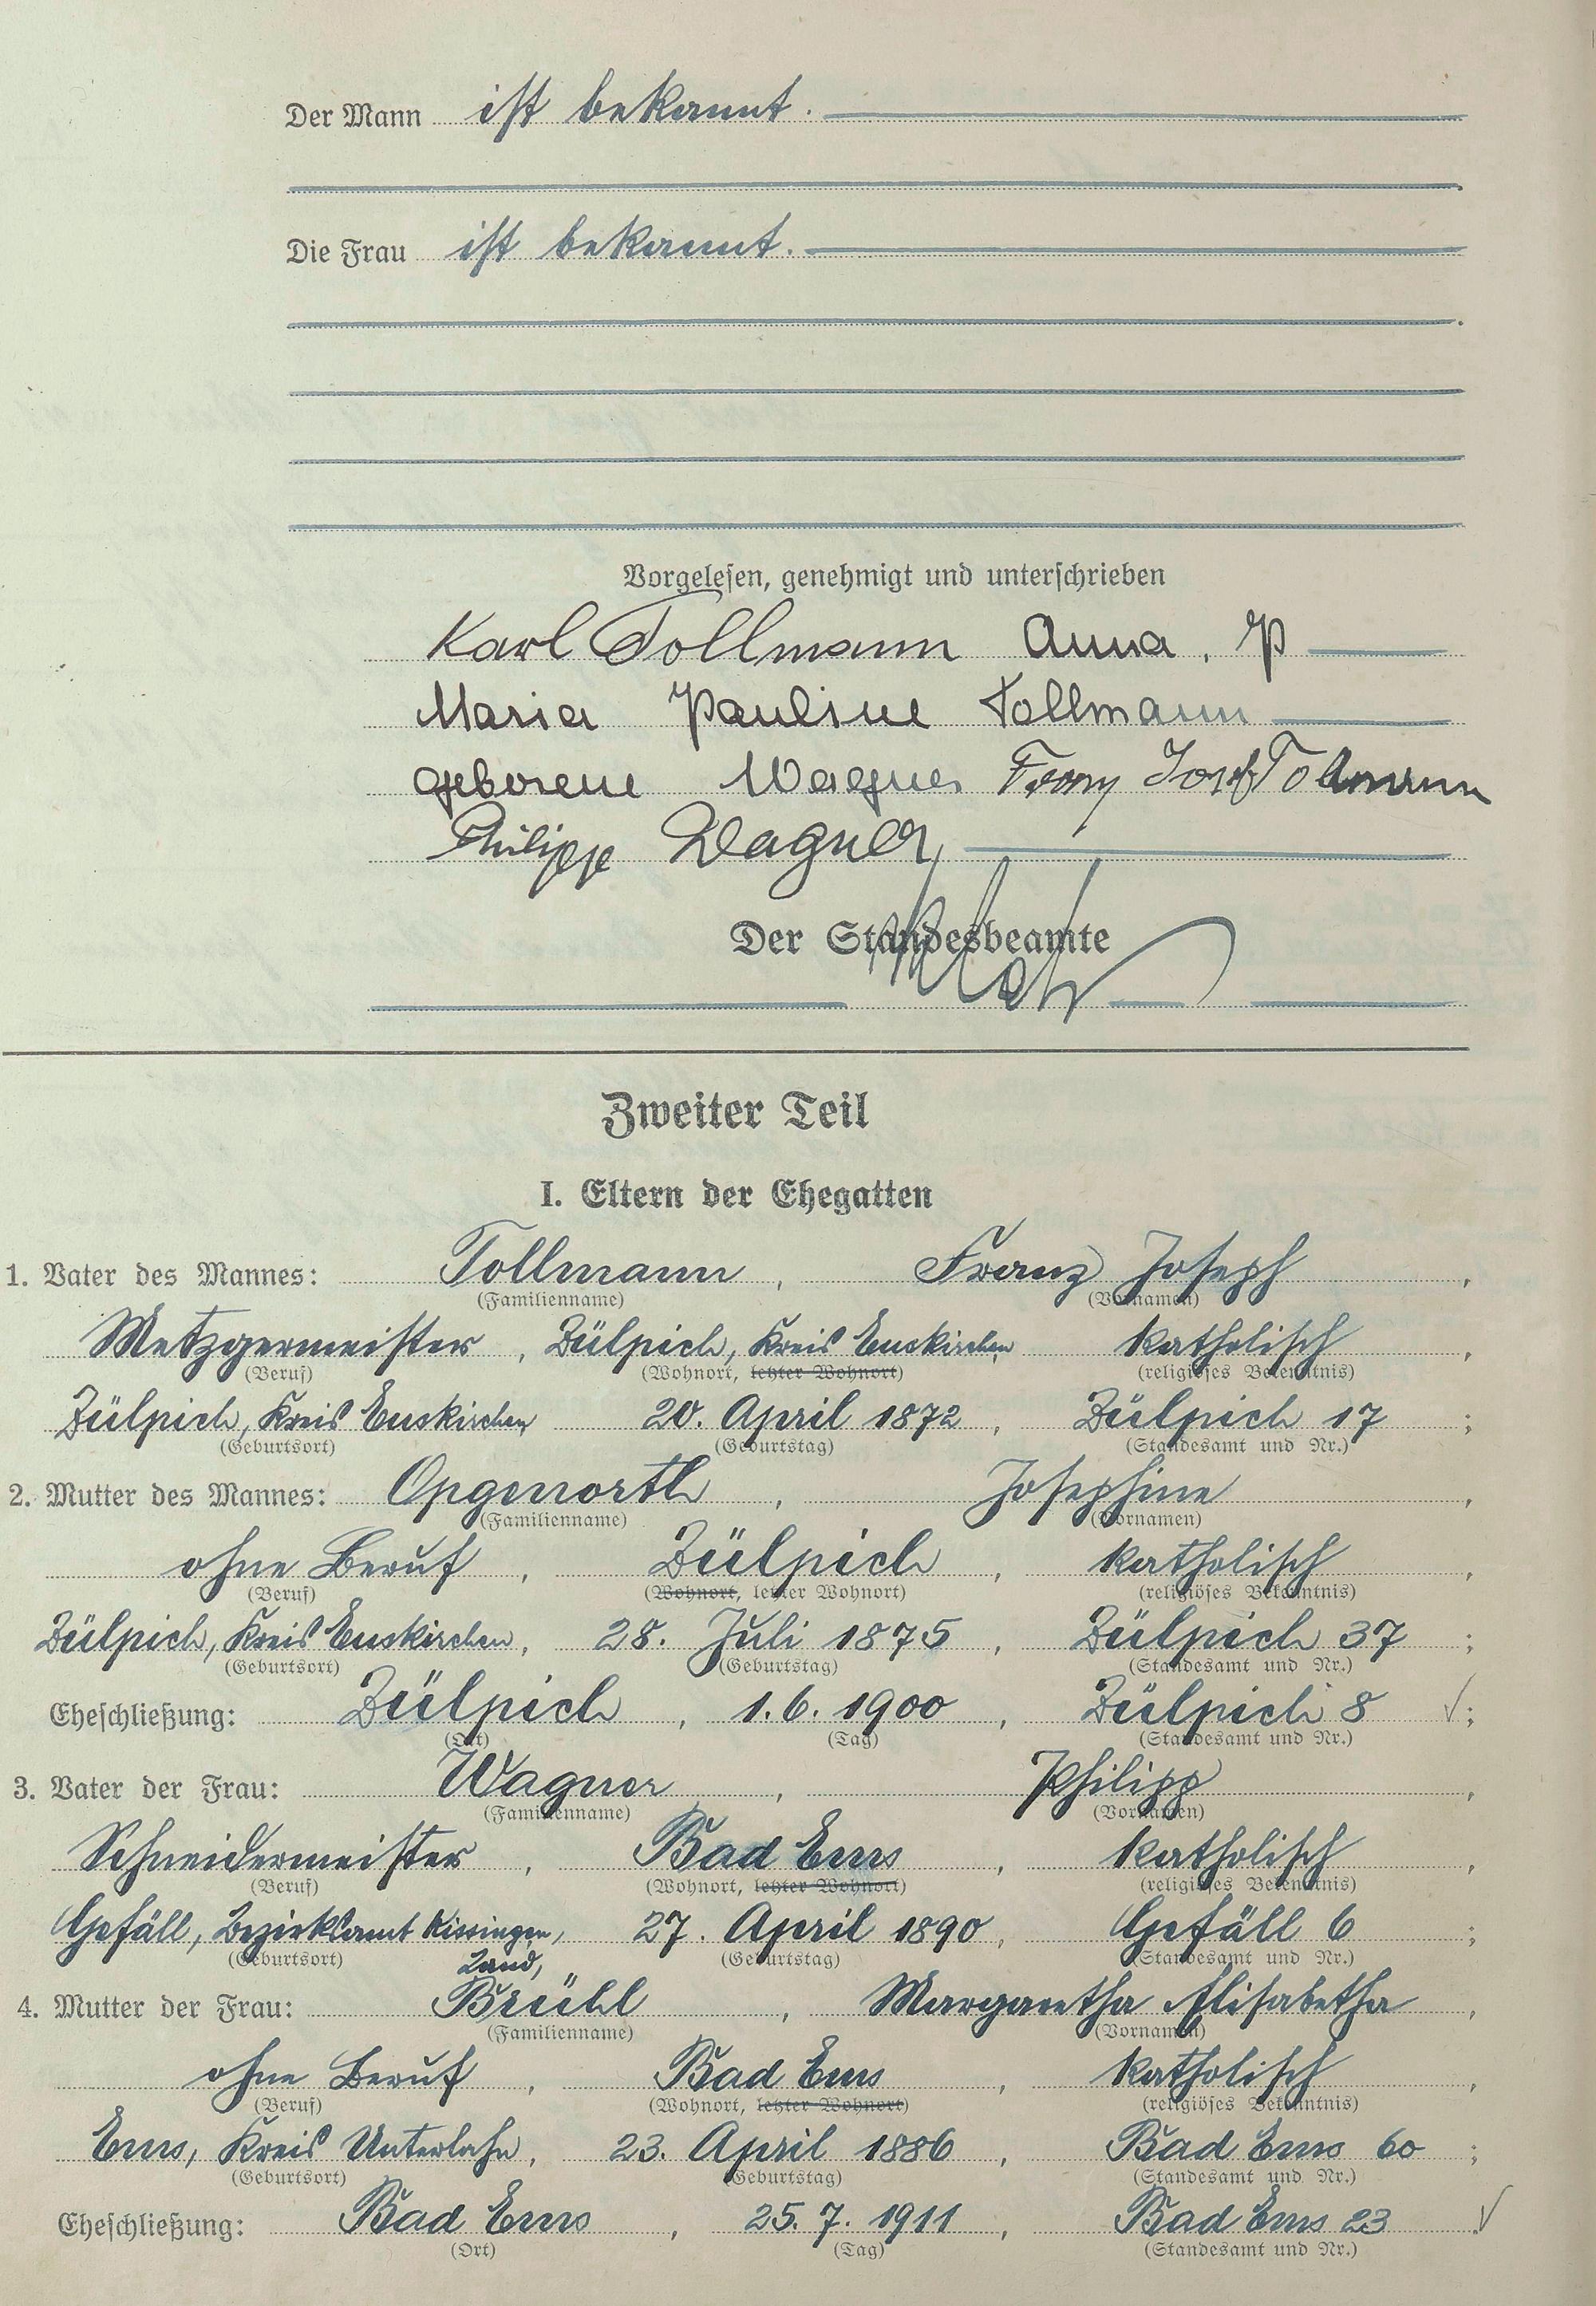 Der Mann ist bekannt.
Die Frau ist bekannt.
Vorgelesen, genehmigt und unterschrieben
Karl Tollmann Anna, P
Maria Pauline Tollmann
geborene Wagner Franz Josef Tollmann
Philipp Wagner,
Der Standesbeamte
Zweiter Teil
I. Eltern der Ehegatten
1. Vater des Mannes: Tollmann, Franz Joseph,
(Familienname) (Vornamen)
Metzgermeister, Zülpich, Kreis Euskirchen katholisch,
(Beruf) (Wohnort, letzter Wohnort) (religiöses Bekenntnis)
Zülpich, Kreis Euskirchen, 20. April 1872, Zülpich 17;
(Geburtsort) (Geburtstag) (Standesamt und Nr.)
2. Mutter des Mannes: Opgenorth, Josephine,
(Familienname) (Vornamen)
ohne Beruf, Zülpich, katholisch,
(Beruf) (Wohnort, letzter Wohnort) (religiöses Bekenntnis)
Zülpich, Kreis Euskirchen, 28. Juli 1875, Zülpich 37;
(Geburtsort) (Geburtstag) (Standesamt und Nr.)
Eheschließung: Zülpich, 1.6.1900, Zülpich 8 ✓;
(Ort) (Tag) (Standesamt und Nr.)
3. Vater der Frau: Wagner, Philipp,
(Familienname) (Vornamen)
Schneidermeister, Bad Ems, katholisch,
(Beruf) (Wohnort, letzter Wohnort) (religiöses Bekenntnis)
Gefäll, Bezirksamt Kissingen, 27. April 1890, Gefäll 6;
(Geburtsort) Land, (Geburtstag) (Standesamt und Nr.)
4. Mutter der Frau: Brühl, Margaretha Elisabetha,
(Familienname) (Vornamen)
ohne Beruf, Bad Ems, katholisch,
(Beruf) (Wohnort, letzter Wohnort) (religiöses Bekenntnis)
Ems, Kreis Unterlahn, 23. April 1886, Bad Ems 60;
(Geburtsort) (Geburtstag) (Standesamt und Nr.)
Eheschließung: Bad Ems, 25.7.1911, Bad Ems 23. ✓
(Ort) (Tag) (Standesamt und Nr.)